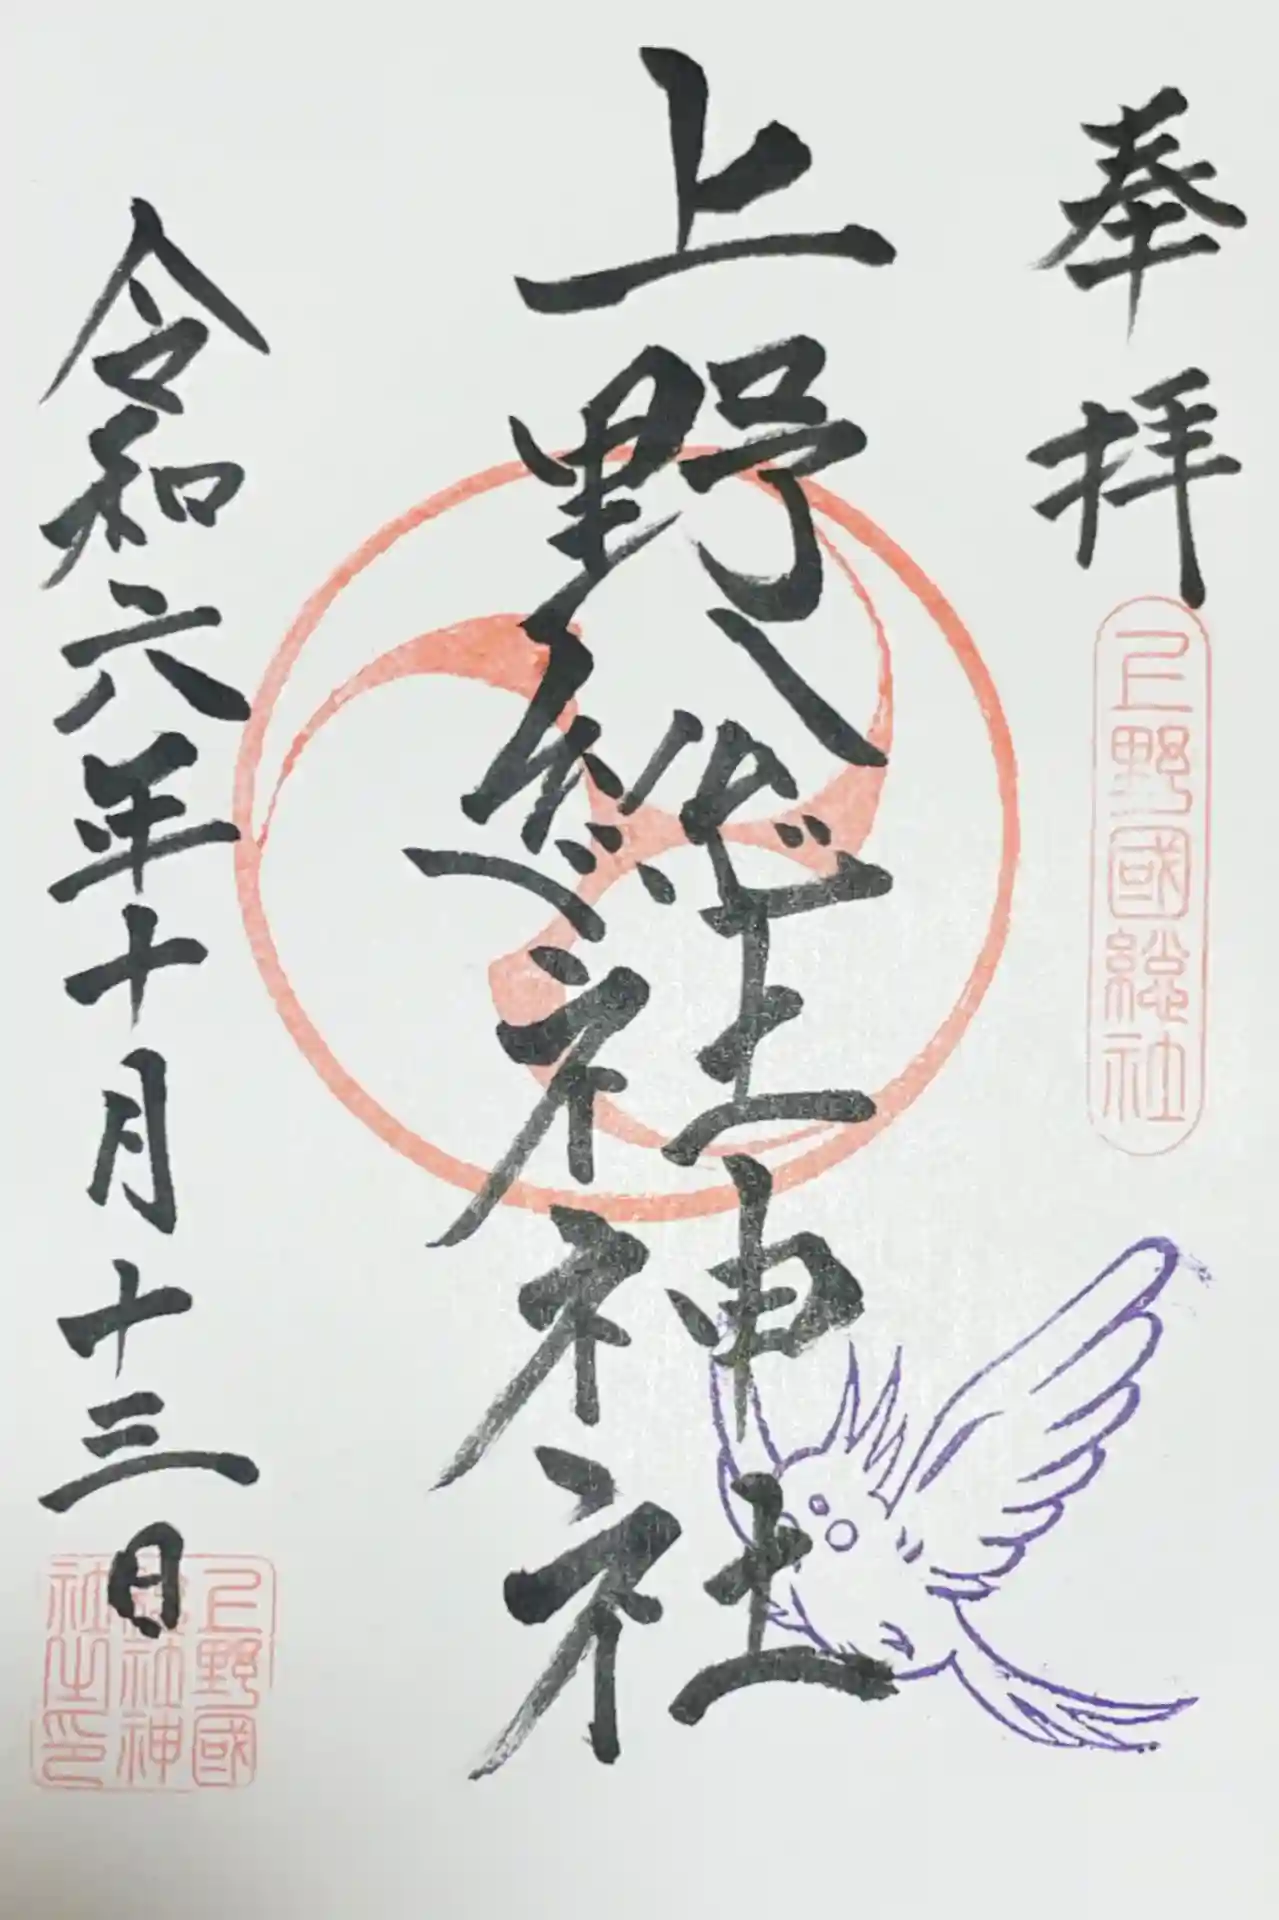 奉拝
上野國総社
上野総社神社
令和六年十月十三日
上野國
総社神
社之印